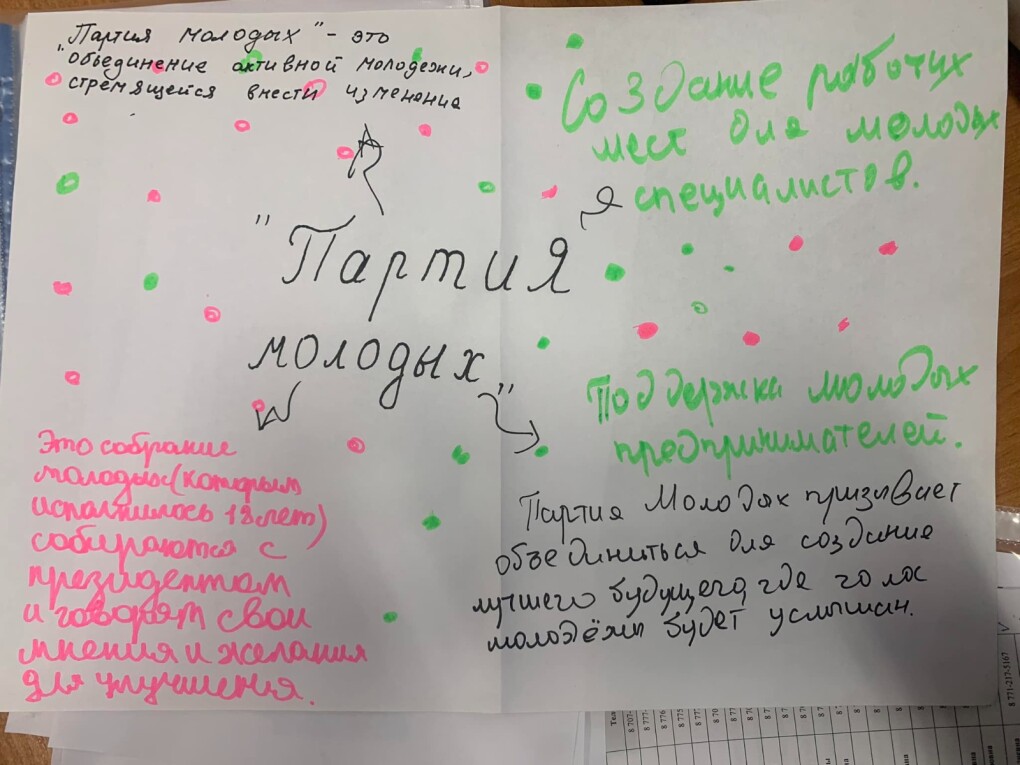 "Партия молодых" - это
"объединение активной молодежи,
стремящейся внести изменения
Создание рабочих
мест для молодых
специалистов.
"Партия
молодых"
Поддержка молодых
предпринимателей.
Это собрание
молодых (которым
исполнилось 18 лет)
собираются с
президентом
и говорят свои
мнения и желания
для улучшения.
Партия Молодых призывает
объединиться для создание
лучшего будущего, где голос
молодёжи будет услышан.
8 771-217-5167